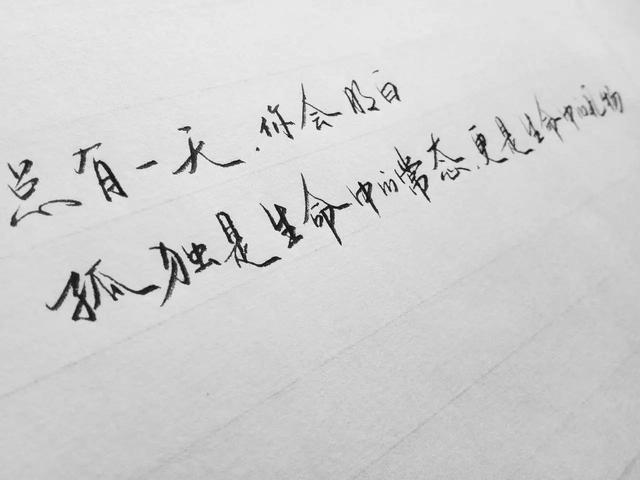 总有一天,你会明白
孤独是生命中的常态,更是生命中的礼物